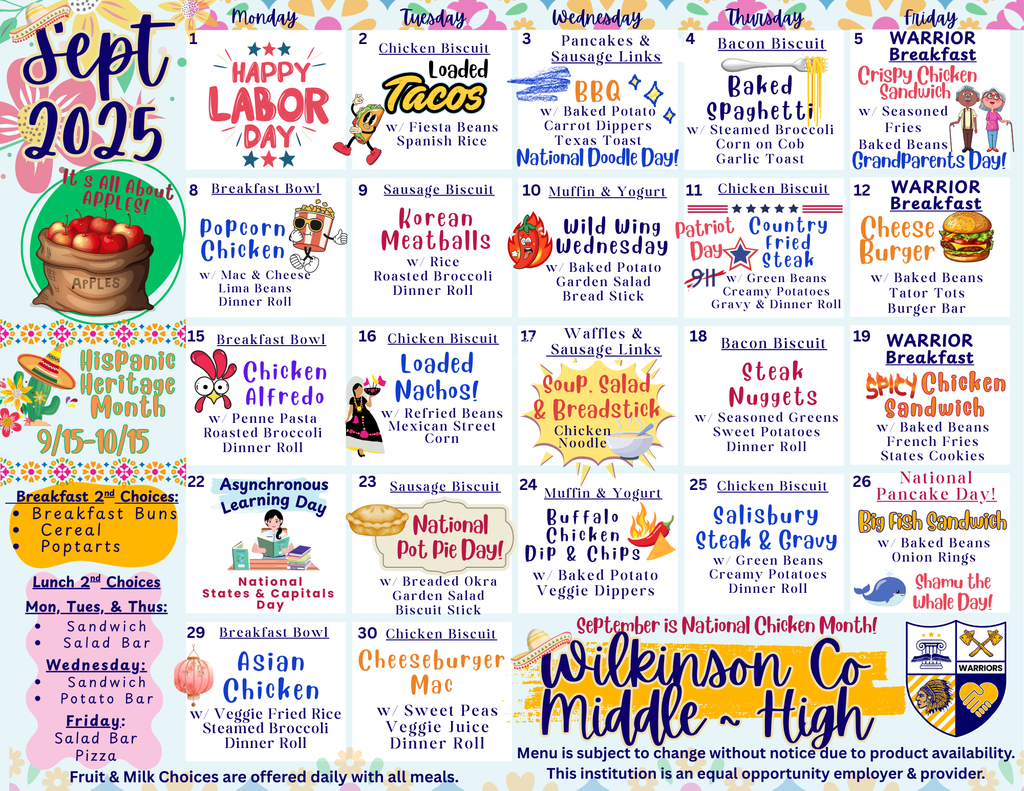 Sept
2025
Monday
Tuesday
Wednesday
Thursday
Friday
1
HAPPY
LABOR
DAY
2
Chicken Biscuit
Loaded
Tacos
w/ Fiesta Beans
Spanish Rice
3
Pancakes &
Sausage Links
BBQ
w/ Baked Potato
Carrot Dippers
Texas Toast
National Doodle Day!
4
Bacon Biscuit
Baked
Spaghetti
w/ Steamed Broccoli
Corn on Cob
Garlic Toast
5
WARRIOR
Breakfast
Crispy Chicken
Sandwich
w/ Seasoned
Fries
Baked Beans
Grandparents Day!
It's All About
APPLES!
APPLES
8
Breakfast Bowl
Popcorn
Chicken
w/ Mac & Cheese
Lima Beans
Dinner Roll
9
Sausage Biscuit
Korean
Meatballs
w/ Rice
Roasted Broccoli
Dinner Roll
10
Muffin & Yogurt
Wild Wing
Wednesday
w/ Baked Potato
Garden Salad
Bread Stick
11
Chicken Biscuit
Patriot
Day
911
Country
Fried
Steak
w/ Green Beans
Creamy Potatoes
Gravy & Dinner Roll
12
WARRIOR
Breakfast
Cheese
Burger
w/ Baked Beans
Tator Tots
Burger Bar
Hispanic
Heritage
Month
9/15-10/15
15
Breakfast Bowl
Chicken
Alfredo
w/ Penne Pasta
Roasted Broccoli
Dinner Roll
16
Chicken Biscuit
Loaded
Nachos!
w/ Refried Beans
Mexican Street
Corn
17
Waffles &
Sausage Links
Soup, Salad
& Breadstick
Chicken
Noodle
18
Bacon Biscuit
Steak
Nuggets
w/ Seasoned Greens
Sweet Potatoes
Dinner Roll
19
WARRIOR
Breakfast
SPICY Chicken
Sandwich
w/ Baked Beans
French Fries
States Cookies
Breakfast 2nd Choices:
• Breakfast Buns
• Cereal
• Poptarts
22
Asynchronous
Learning Day
National
States & Capitals
Day
23
Sausage Biscuit
National
Pot Pie Day!
w/ Breaded Okra
Garden Salad
Biscuit Stick
24
Muffin & Yogurt
Buffalo
Chicken
Dip & Chips
w/ Baked Potato
Veggie Dippers
25
Chicken Biscuit
Salisbury
Steak & Gravy
w/ Green Beans
Creamy Potatoes
Dinner Roll
26
National
Pancake Day!
Big Fish Sandwich
w/ Baked Beans
Onion Rings
Shamu the
Whale Day!
Lunch 2nd Choices
Mon, Tues, & Thus:
• Sandwich
• Salad Bar
Wednesday:
• Sandwich
• Potato Bar
Friday:
Salad Bar
Pizza
29
Breakfast Bowl
Asian
Chicken
w/ Veggie Fried Rice
Steamed Broccoli
Dinner Roll
30
Chicken Biscuit
Cheeseburger
Mac
w/ Sweet Peas
Veggie Juice
Dinner Roll
September is National Chicken Month!
Wilkinson Co
Middle ~ High
WARRIORS
Menu is subject to change without notice due to product availability.
This institution is an equal opportunity employer & provider.
Fruit & Milk Choices are offered daily with all meals.